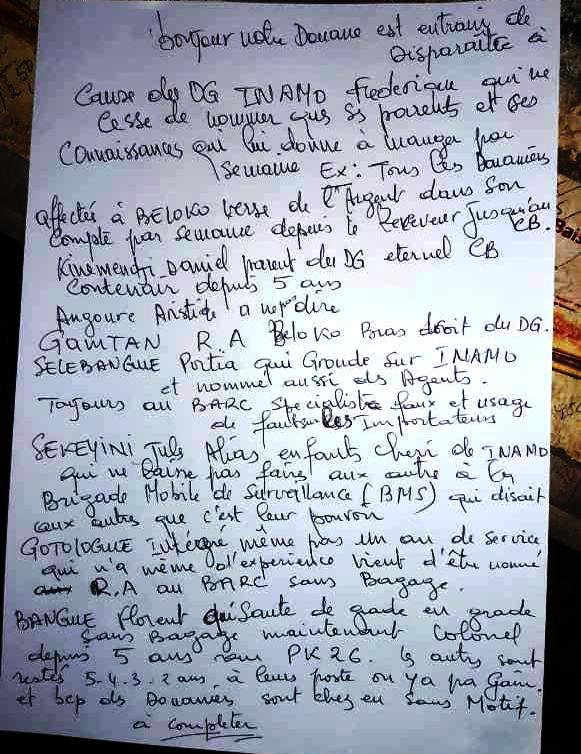 bonjour notre Douane est entrain de
Disparaitre à
Cause du DG INAMO Frederique qui ne
Cesse de nommer que ss parents et ses
Connaissances qui lui donne à manger par
Semaine Ex: Tous les Douaniers
affectés à BELOKO verse de l'Argent dans son
Compte par semaine depuis le Receveur jusqu'au
CB.
Kinemendji Daniel parent du DG eternel CB
Contenair depuis 5 ans
Angoure Aristide a ne dire
GAMTAN R.A Beloko Bras droit du DG.
SELEBANGUE Portia qui Gronde sur INAMO
et nomme aussi ds Agents.
Toujours au BARC specialiste faux et usage
de faux les Importateurs
SEKEYINI Juls Alias enfants cheri de INAMO
qui ne laisse pas faire aux autre à la
Brigade Mobile de Surveillance (BMS) qui disait
aux autres que c'est leur pouvoir
GOTOLOGUE Intègre même pas un an de service
qui n'a même d'experience vient d'être nommé
R.A au BARC sans Bagage.
BANGUE Florent qui Saute de grade en grade
Sans Bagage maintenant Colonel
depuis 5 ans PK26. ls autres sont
restés 5.4.3.2 ans à leurs poste on ya pra Gain.
et bcp ds Douaniers sont chez eu sans Motif.
à completer